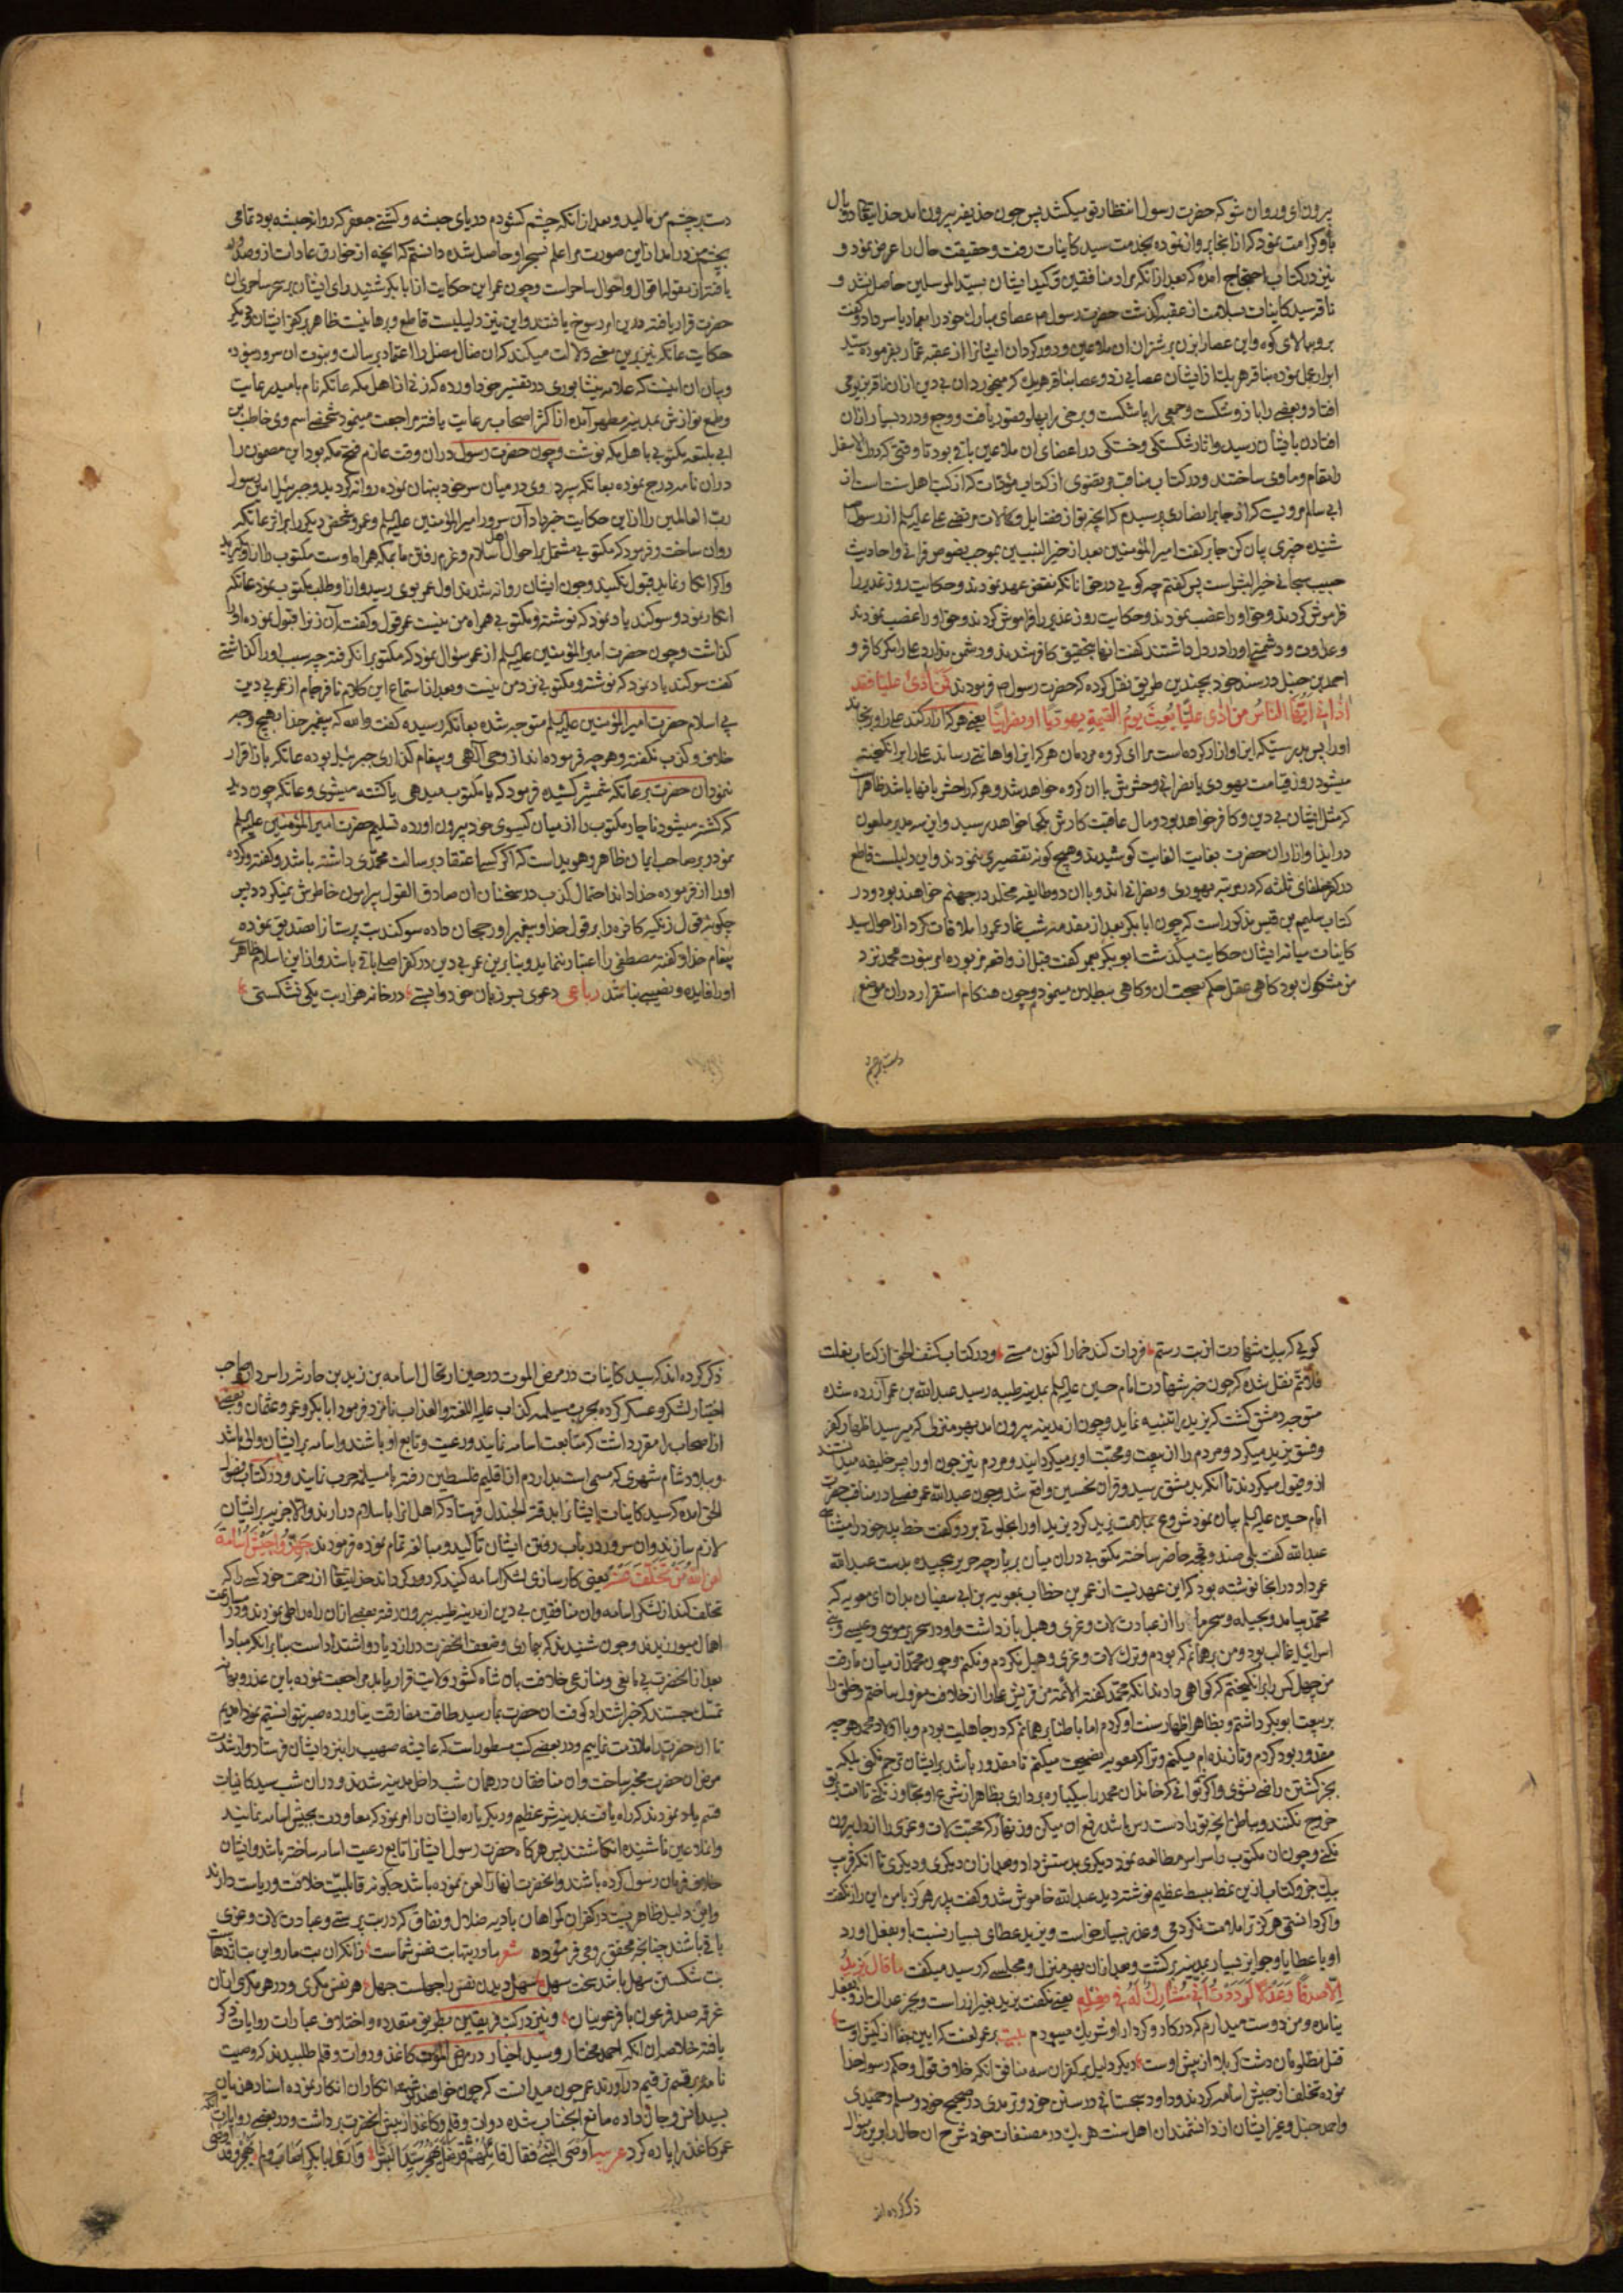 برون ای و روان شو که حضرت رسول انتظار تو میکشد پس چون حذیفه بیرون امد حذایفه
باو کرامت نمود که از انجا پرواز نموده بخدمت سید کاینات رفت و حقیقت حال را عرض نمود و
نیز در کتاب احتجاج امده که بعد از انکه مراد منافقین و کید ایشان بسید المرسلین حاصل نشد و
ناقه سید کاینات بسلامت از عقبه گذشت حضرت رسول م عصای مبارک خود را بعمار یاسر داد و گفت
برو ببالای کوه و این عصا بزن بر شتران ان ملاعین و دور کردان ایشانرا از عقبه عمار بفرموده سید
ابرار عمل نموده بناقه هر یک از ایشان عصایی زد و عصا بناقه هر یک که میخورد ان بی دین از ان ناقه بزمین
افتاد و بعضی را بازو شکست و جمعی را پا شکست و برخی را پهلو فتور یافت و وجع و درد بسیار از ان
افتادن بایشان رسید و اثار شکستکی و خستکی در اعضای ان ملاعین باقی بود تا وقتی که درک الاسفل
را مقام و ماوی ساختند و در کتاب مناقب
ابی سالم مرویست که از جابر انصاری پرسیدم که انچه تو از فضایل و کمالات مرتضی علی علیه السلم از رسول
شنیده چیزی بیان کن جابر گفت امیر المؤمنین بعد از خیر النبیین بموجب نصوص قرانی و احادیث
حبیب سبحانی خیر البشر است پس گفتم چه گویی در حق انانکه نقض عهد نمودند و حکایت روز غدیر را
فراموش کردند و حق او را غصب نمودند
و عداوت و دشمنی او را در دل داشتند گفت انها بتحقیق کافر شدند و دشمن ندارد علی را مکر کافر و
احمد بن حنبل در مسند خود بچندین طریق نقل کرده که حضرت رسول م فرمودند من اذی علیا فقد
اذانی ایها الناس من اذی علیا بعث یوم القیمة یهودیا او نصرانیا یعنی هر که ازار کند علی را
میشود روز قیامت یهودی یا نصرانی و حشرش با ان کروه خواهد شد و هر که را حشر با انها باشد ظاهر است
که مثل ایشان بی دین و کافر خواهد بود و مال عاقبت کارش بکجا خواهد رسید
در ایذا و ازار ان حضرت بغایت الغایت کوشیدند و هیچ کونه تقصیری ننمودند و این دلیلست قاطع
در کفر خلفای ثلثه که در مرتبه یهودی و نصرانی اند و با ان دو طایفه مخلد در جهنم خواهند بود و در
کتاب سلیم بن قیس مذکور است که چون ابا بکر بعد از مقدمه شب غار عمر را ملاقات کرد از احوال سید
کاینات میانه ایشان حکایت میگذشت ابو بکر بعمر گفت قبل از واقعه مزبوره امر نبوت محمد نزد
من مشکوک بود کاهی عقل حکم بصحت ان و کاهی ببطلان مینمود و چون هنکام استقرار در ان موضع
دست بر چشم
دست بر چشم من مالید و بعد از انکه چشم کشودم دریای حبشه و کشتی جعفر که روانه حبشه بود تمامی
بچشم من در امد از این صورت مرا علم بسحر او حاصل شد و دانستم که انچه از خوارق عادات از وصدور
یافته از مقوله اقوال و احوال ساحرانست و چون عمر این حکایت از ابا بکر شنید رای ایشان بر سحر ساحری ان
حضرت قرار یافته در این امر رسوخ یافتند و این نیز دلیلیست قاطع و برهانیست ظاهر بر کفر ایشان و دیکر
حکایت عاتکه نیز برین معنی دلالت میکند که ان ضال مضل را اعتماد برسالت و نبوت ان سرور نبود
و بیان ان اینست که علامه نیشابوری در تفسیر خود اورده که زنی از اهل مکه عاتکه نام بامید رعایت
و طمع نوازش بمدینه مطهره آمده از اکثر اصحاب رعایت یافته مراجعت مینمود شخصی اسم وی حاطب بن
ابی بلتعه مکتوبی باهل مکه نوشت و چون حضرت رسول دران وقت عازم فتح مکه بود این مضمون را
دران نامه درج نموده بعاتکه سپرد وی در میان سر خود پنهان نموده روانه کردید و جبرئیل امین رسول
رب العالمین را از این حکایت خبر داد آن سرور امیر المؤمنین علیه السلم و عمر و شخص دیکر را بر اثر عاتکه
روان ساخت و فرمود که مکتوبی مشتمل بر احوال اهل اسلام و عزم رفتن ما بمکه همراه اوست مکتوب طلب
و اکر انکار نماید قبول نکنید و چون ایشان روانه شدند اول عمر بوی رسید و از او طلب مکتوب نمود عاتکه
انکار نمود و سوکند یاد نمود که نوشته و مکتوبی همراه من نیست عمر قول و کفت آن زن را قبول نموده او را
کذاشت و چون حضرت امیر المؤمنین علیه السلم از عمر سؤال نمود که مکتوب را نکرفته چه سبب او را کذاشتی
کفت سوکند یاد نمود که نوشته و مکتوبی نزد من نیست و بعد از استماع این کلام نافرجام از عمر بی دین
بی اسلام حضرت امیر المؤمنین علیه السلم متوجه شده بعاتکه رسیده گفت والله که پیغمبر خدا بهیچ وجه
خلاف و کذب نکفته و هر چه فرموده اند از وحی آلهی و پیغام کذاری جبرئیل بوده عاتکه باز اقرار
ننمود ان حضرت بر عاتکه شمشیر کشیده فرمود که یا مکتوب میدهی یا کشته میشوی و عاتکه چون دید
که کشته میشود ناچار مکتوب را از میان کیسوی خود بیرون اورده تسلیم حضرت امیر المؤمنین علیه السلم
نمود بر صاحب ایمان ظاهر و هویداست که اکر کسی اعتقاد برسالت محمدی داشته باشد و کفته و کرده
او را از فرموده خدا داند احتمال کذب در سخنان ان صادق القول پیرامون خاطرش نمیکردد پس
چکونه قول زنکه کافره را بر قول خدا و پیغمبر او رجحان داده سوکند بت پرستانرا تصدیق نموده
پیغام خدا و کفته مصطفی را اعتبار ننماید و بنابرین عمر بی دین در کفر اصلی باقی باشد و از این اسلام ظاهری
او را فایده و نصیبی نباشد رباعی دعوی بسر زبان خود وابستی در خانه هزار بت یکی نشکستی
کویی که بیک شهادت از بت رستم فردات کند خمار اکنون مستی و در کتاب کشف الحق
نقل شده که چون خبر شهادت امام حسین علیه السلم بمدینه طیبه رسید عبد الله بن عمر آزرده شده
متوجه دمشق کشت که یزید را تنبیه نماید و چون از مدینه بیرون امد بهر منزلی که میرسید اظهار کفر
و فسق یزید میکرد و مردم را از بیعت و محبت او بر میکردانید و مردم نیز چون او را پسر خلیفه میدانستند
از و قبول میکردند تا انکه بدمشق رسید
امام حسین علیه السلم بیان نمود شروع بملامت یزید کرد یزید او را بخلوتی برد و گفت خط پدر خود را میشناسی
عبدالله کفت بلی صندوقچه حاضر ساخته مکتوبی دران میان بر پارچه حریر پیچیده بدست عبدالله
عمر داد در انجا نوشته بود که این عهدیست از عمر بن خطاب بمعویه بن ابی سفیان بدان ای معویه که
محمد بیامد و بحیله و سحر ما را از عبادت لات و عزی و هبل باز داشت و او در سحر بر موسی و عیسی و بنی
اسرائیل غالب بود و من بر همانم که بودم و ترک لات و عزی و هبل نکردم و نکنم و چون محمد از میان ما رفت
من چهل کس را برانکیختم که کواهی دادند انکه محمد کفته الائمه من قریش علی را از خلافت معزول ساختم و خلق را
بر بیعت ابو بکر داشتم و بظاهر اظهار سنت او کردم اما باطنا بر همانم که در جاهلیت بودم و با اولاد محمد هر چه
مقدور بود کردم و تا زنده ام میکنم و ترا که معویه نصیحت میکنم تا مقدور باشد بر ایشان ترحم نکنی بلکه
بجز کشتن راضی نشوی و اکر توانی که خاندان محمد را بیکباره برداری بظاهر از شرع او تجاوز نکنی تا امت
خروج نکنند و بباطن انچه ترا دست رس باشد رفع ان میکن و زنهار که محبت لات و عزی را از دل بیرون
نکنی و چون ان مکتوب را سراسر مطالعه نمود دیکری بدستش داد و بعد از ان دیکری و دیکری تا انکه قریب
بیک جزو کتاب ازین نمط ببسط عظیم نوشته دید عبدالله خاموش شد و کفت پدر هرکز با من این راز نکفت
و اکر دانستمی هرکز ترا ملامت نکردمی و عذر بسیار خواست و یزید عطای بسیار نسبت باو بفعل اورد
او با عطایا و جوایز بسیار بمدینه برکشت و بعد از ان بهر منزل و مجلسی که رسید میکفت ما قال یزید
الا صدقا و عدلا لوددت انی مشارک له فی فعله یعنی نکفت یزید بغیر از راست و بجز عدالت ازو بفعل
نیامده و من دوست میدارم که در کار و کردار او شریک میبودم بیت بر عمر لعنت که این جفا از کیش اوست
قتل مظلومان دشت کربلا از پیش اوست دیکر دلیل بر کفر ان سه منافق انکه خلاف قول و حکم رسول خدا
نموده تخلف از جیش اسامه کردند و داود سجستانی در سنن خود و ترمدی در صحیح خود و مسلم و حمیدی
و احمد حنبل و غیر ایشان از دانشمندان اهل سنت هر یک در مصنفات خود شرح ان حال را برین منوال
ذکر کرده اند
ذکر کرده اند که سید کاینات در مرض الموت در حین ارتحال اسامه بن زید بن حارثه را سردار صاحب
اختیار لشکر و عسکر کرده بحرب مسیلمه کذاب علیه اللعنة و العذاب نامزد فرمود ابا بکر و عمر و عثمان و بعضی
از اصحاب را مقرر داشت که متابعت اسامه نمایند و رعیت و تابع او باشند و اسامه بر ایشان والی باشد
و ببلاد شام شهری که مسمی است بداروم از اقلیم فلسطین رفته با مسیلمه حرب نمایند و در کتاب
الحق امده که سید کاینات ایشانرا بدومة الجندل فرستاد که اهل انرا باسلام در ارند والا جزیه بر ایشان
لازم سازند و ان سرور در باب رفتن ایشان تاکید و مبالغه تمام نموده فرمودند جهزوا جیش اسامة
لعن الله من تخلف عنه یعنی کارسازی لشکر اسامه کنید که دور کرداند خدایتعالی از رحمت خود کسی را که
تخلف کند از لشکر اسامه و ان منافقین بی دین از مدینه طیبه بیرون رفته بعضی از ان راه را طی نمودند و در مسارعت
اهمال میورزیدند و چون شنیدند که بیماری و ضعف انحضرت در ازدیاد و اشتداد است بنابر انکه مبادا
بعد از انحضرت بی مانعی و منازعی خلافت بان شاه کشور ولایت قرار یابد مراجعت نموده باین عذر و بهانه
تمسک جستند که خبر اشتداد کوفت ان حضرت بما رسید طاقت مفارقت نیاورده صبر نتوانستیم نمود امدیم
تا ان حضرت را ملازمت نماییم و در بعضی کتب مسطور است که عایشه صهیب را بنزد ایشان فرستاد و از شدت
مرض ان حضرت مخبر ساخت و ان منافقان در همان شب داخل مدینه شدند و دران شب سید کاینات
قسم یاد نمودند که راه یافت بمدینه شر عظیم و دیکر باره ایشان را امر نمود که معاودت بجیش اسامه نمایند
و انملاعین ناشنیده انکاشتند پس هر کاه حضرت رسول ایشانرا تابع رعیت اسامه ساخته باشد و ایشان
خلاف فرمان رسول کرده باشند و انحضرت انها را لعن نموده باشد چکونه قابلیت خلافت و ریاست دارند
و این دلیل ظاهریست در کفر ان کمراهان بادیه ضلال و نفاق که در بت پرستی و عبادت لات و عزی
باقی باشند چنانچه محقق رومی فرموده شعر مادر بتها بت نفس شماست زانکه ان بت مار و این بت اژدهاست
بت شکستن سهل باشد سخت سهل سهل دیدن نفس را جهلست جهل هر نفس مکری و در هر مکر ازان
غرقه صد فرعون با فرعونیان و نیز در کتب فریقین بطریق متعدده و اختلاف عبارات روایات ذکر
یافته خلاصه ان انکه احمد مختار و سید اخیار در مرض الموت کاغذ و دوات و قلم طلبیدند که وصیت
نامه برقم ترقیم در آورند عمر چون میدانست که چون خواهند نوشت انکاران انکار نموده اسناد هذیان
بسید انس و جان داده مانع انجناب شده دوات و قلم و کاغذ از پیش انحضرت برداشت و در بعضی روایات انکه
عمر کاغذ را پاره کرد عربیه اوصی النبی فقال قائلهم قد ضل یهجر سید البشر و اری ابا بکر اصاب و لم یهجر و قد